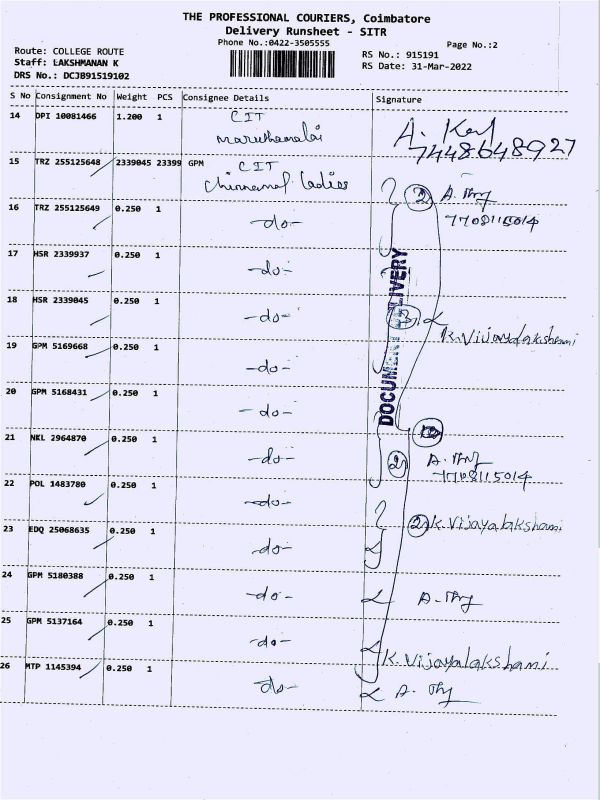 THE PROFESSIONAL COURIERS, Coimbatore
Delivery Runsheet - SITR
Phone No.:0422-3505555
Page No.:2
Route: COLLEGE ROUTE
Staff: LAKSHMANAN K
DRS No.: DCJB91519102
RS No.: 915191
RS Date: 31-Mar-2022
S No Consignment No Weight PCS Consignee Details Signature
14 DPI 10081466 1.200 1 CIT
Maruthamalai
A.
7448648927
15 TRZ 255125648 2339045 23399 GPM CIT
Ladies
2 A.
7708115014
16 TRZ 255125649 0.250 1 -do-
17 HSR 2339937 0.250 1 -do-
DOCUMENT DELIVERY
18 HSR 2339045 0.250 1 -do- 3
K. Vijayalakshami
19 GPM 5169668 0.250 1 -do-
20 GPM 5168431 0.250 1 -do-
21 NKL 2964870 0.250 1 -do- 2 A.
7708115014
22 POL 1483780 0.250 1 -do-
2 K. Vijayalakshami
23 EDQ 25068635 0.250 1 -do-
24 GPM 5180388 0.250 1 -do- A.
25 GPM 5137164 0.250 1 -do-
K. Vijayalakshami
26 MTP 1145394 0.250 1 -do- A.